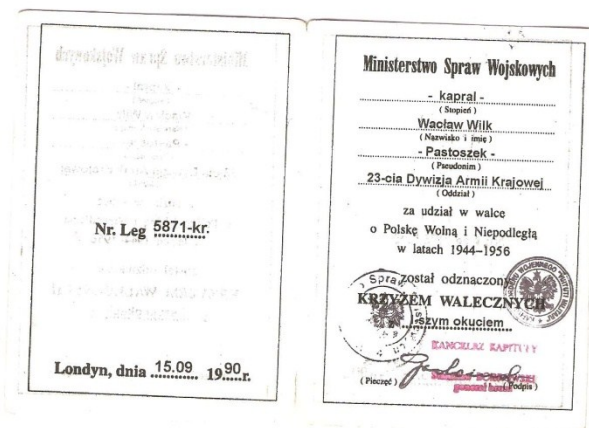 Nr. Leg 5871-kr.
Londyn, dnia 15.09 1990r.
Ministerstwo Spraw Wojskowych
- kapral -
( Stopień )
Wacław Wilk
( Nazwisko i imię )
- Pastoszek -
( Pseudonim )
23-cia Dywizja Armii Krajowej
( Oddział )
za udział w walce
o Polskę Wolną i Niepodległą
w latach 1944–1956
został odznaczony
KRZYŻEM WALECZNYCH
szym okuciem
KANCELARZ KAPITUŁY
( Pieczęć )
( Podpis )